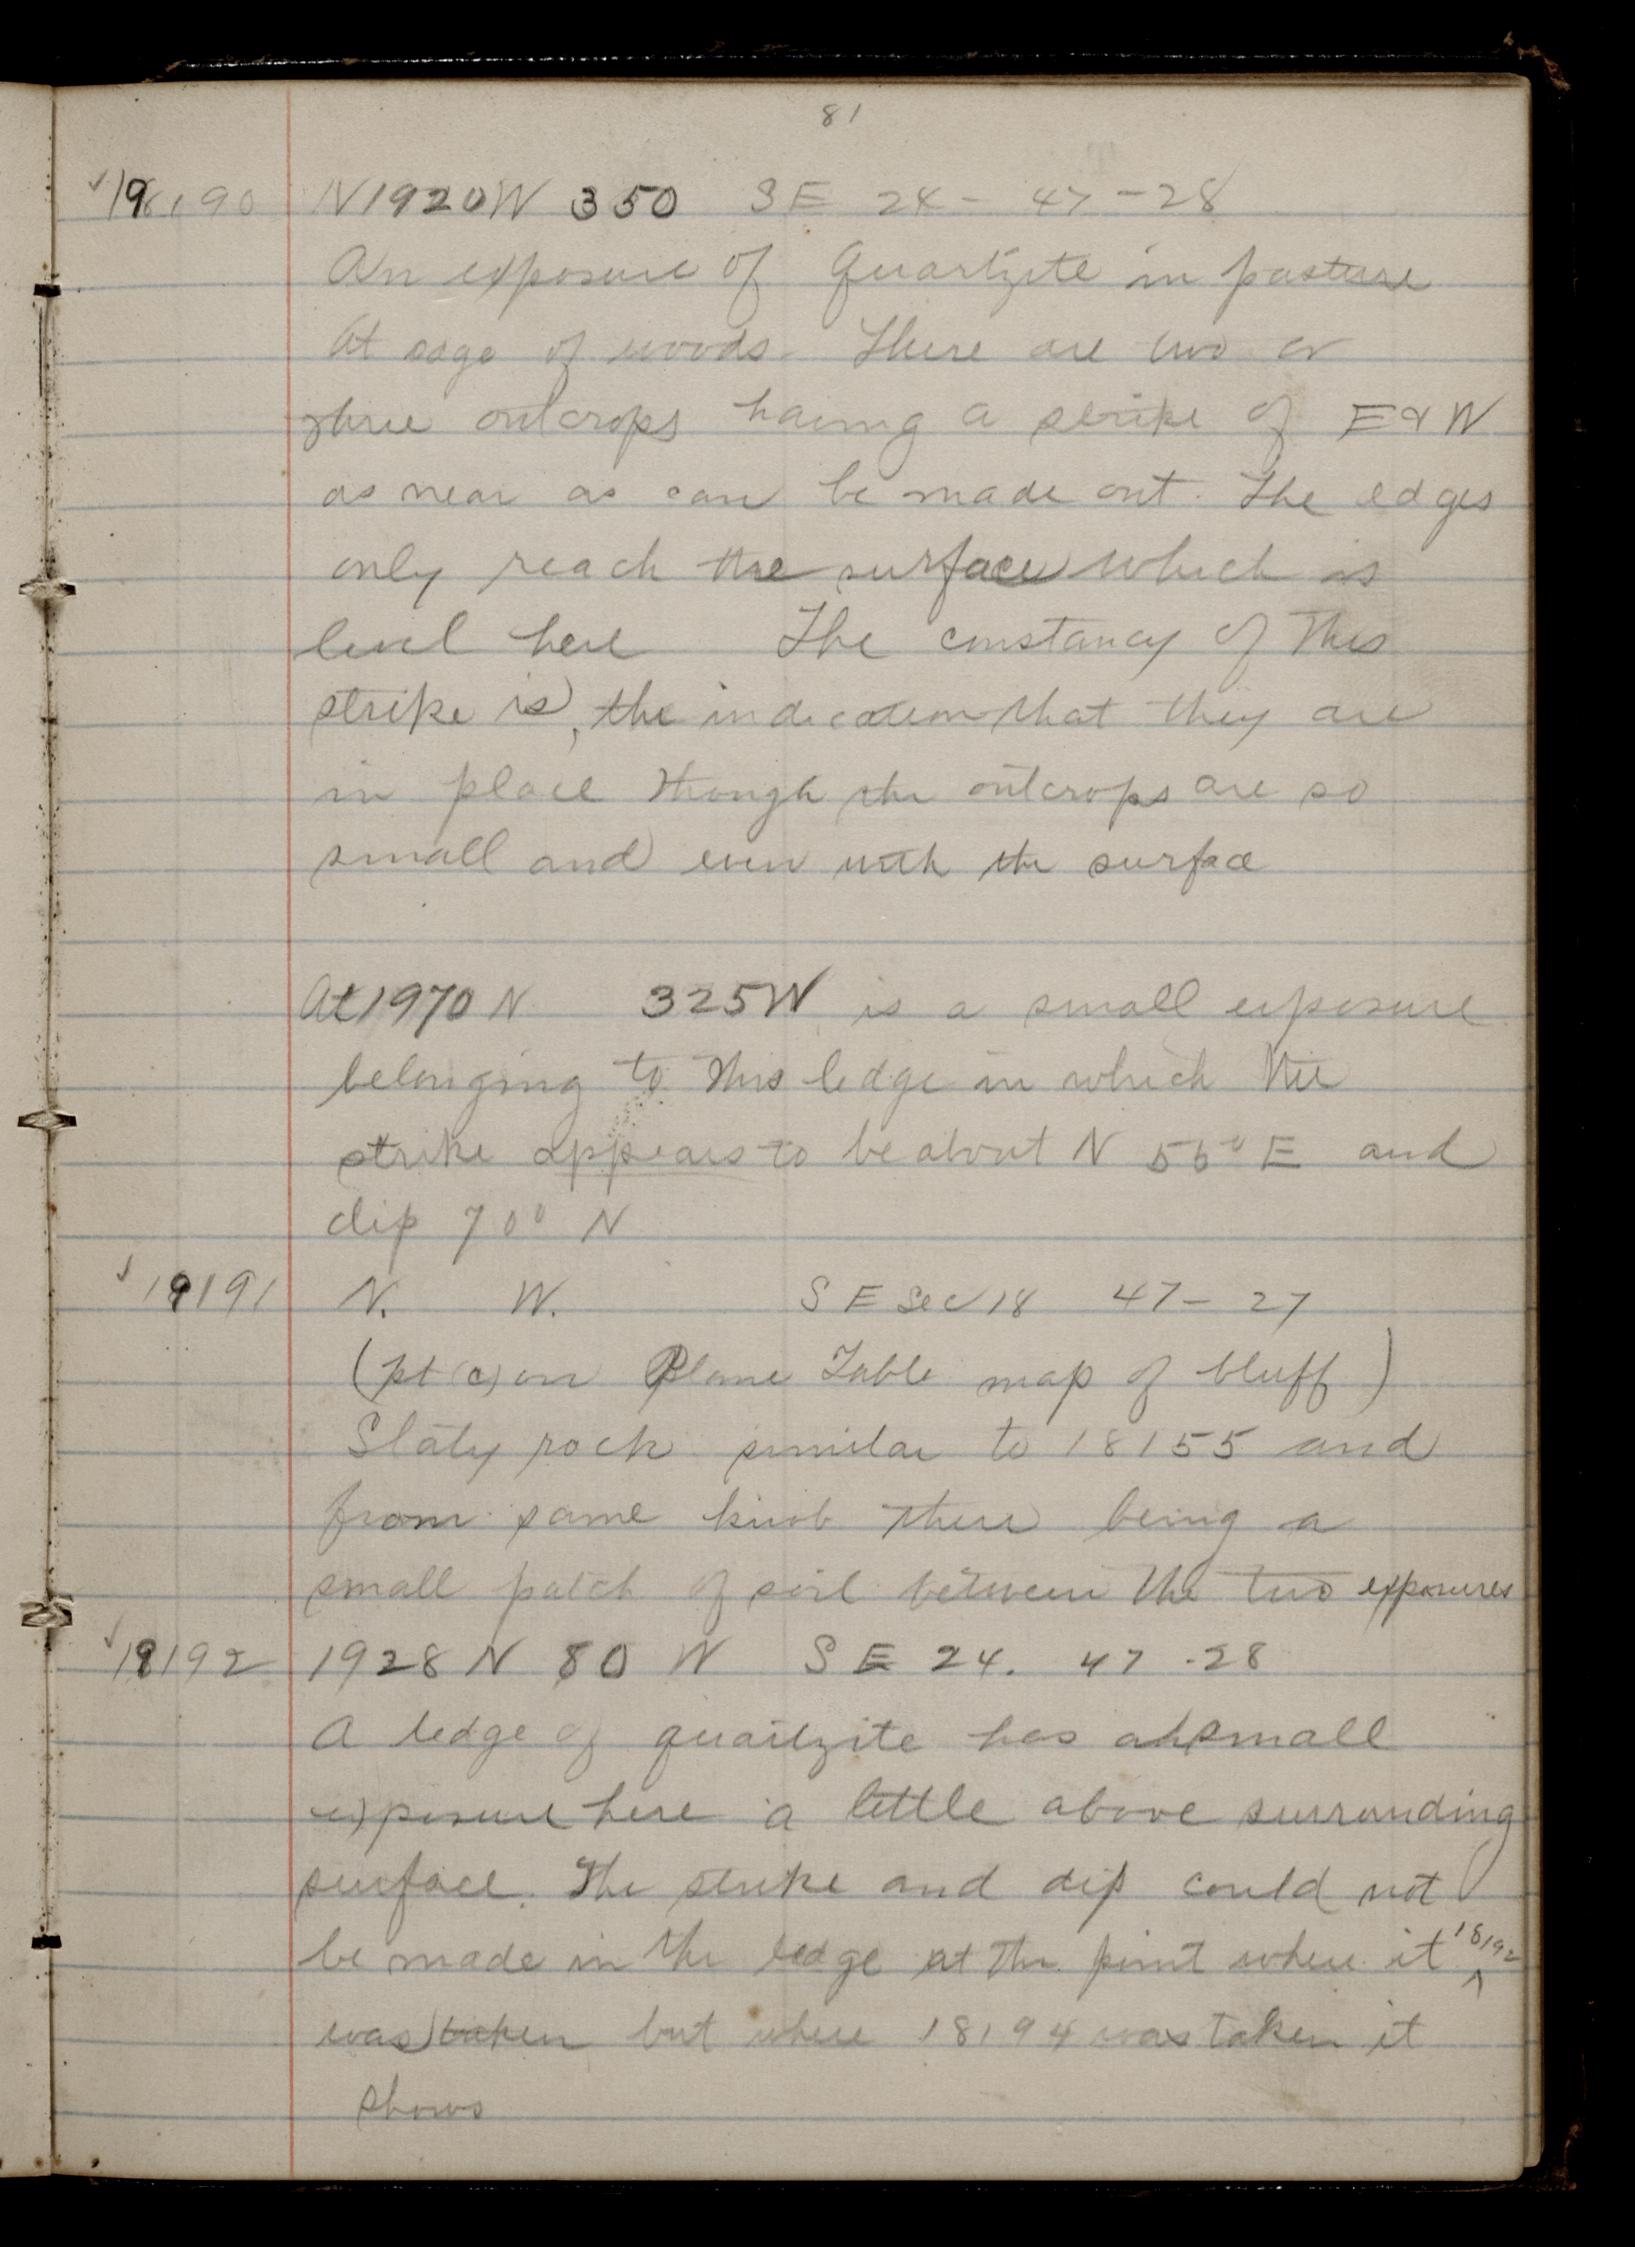 81
18190 N1920W 350 SE 24 - 47 - 28
An exposure of Quartzite in pasture
At edge of woods. There are two or
three outcrops having a strike of E & W
as near as can be made out. The edges
only reach the surface which is
level here The constancy of this
strike is, the indication that they are
in place though the outcrops are so
small and even with the surface
At 1970 N 325W is a small exposure
belonging to this ledge in which the
strike appears to be about N 55° E and
dip 70° N
18191 N. W. S E Sec 18 47 - 27
(pt (c) on Plane Table map of bluff)
Slaty rock similar to 18155 and
from same knob there being a
small patch of soil between the two exposures
18192 1928 N 80 W S E 24. 47 - 28
A ledge of quartzite has a small
exposure here a little above surrounding
surface. The strike and dip could not
be made in the ledge at the point where it ^ 18192
was taken but where 18194 was taken it
shows